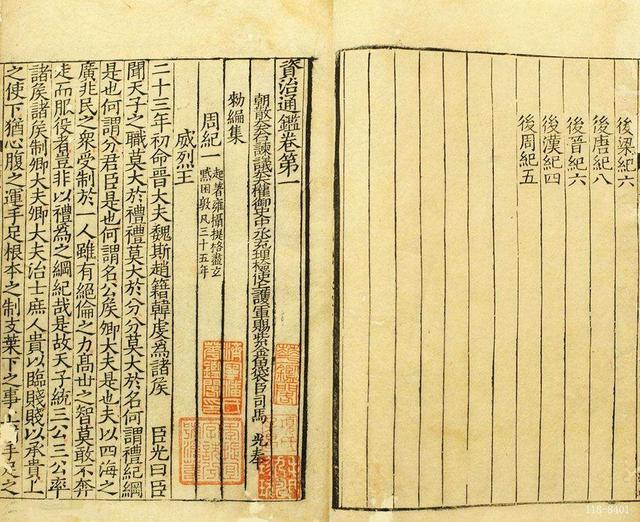 後梁紀六
後唐紀八
後晉紀六
後漢紀四
後周紀五
資治通鑑卷第一
朝散大夫右諫議大夫權御史中丞充理檢使上護軍賜紫金魚袋臣司馬 光奉
勑編集
周紀一 起著雍攝提格盡玄
黓困敦凡三十五年
威烈王
二十三年初命晉大夫魏斯趙籍韓虔為諸矦 臣光曰臣
聞天子之職莫大於禮禮莫大於分分莫大於名何謂禮紀綱
是也何謂分君臣是也何謂名公矦卿大夫是也夫以四海之
廣兆民之衆受制於一人雖有絕倫之力高世之智莫敢不奔
走而服役者豈非以禮為之綱紀哉是故天子統三公三公率
諸矦諸矦制卿大夫卿大夫治士庶人貴以臨賤賤以承貴上
之使下猶心腹之運手足根本之制支葉下之事上猶手足之
118-8401